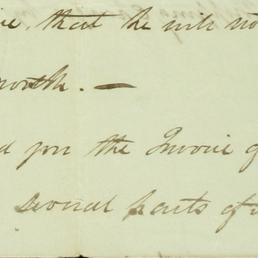 that the will no
worth. —
d you the Invoice of
several parts of